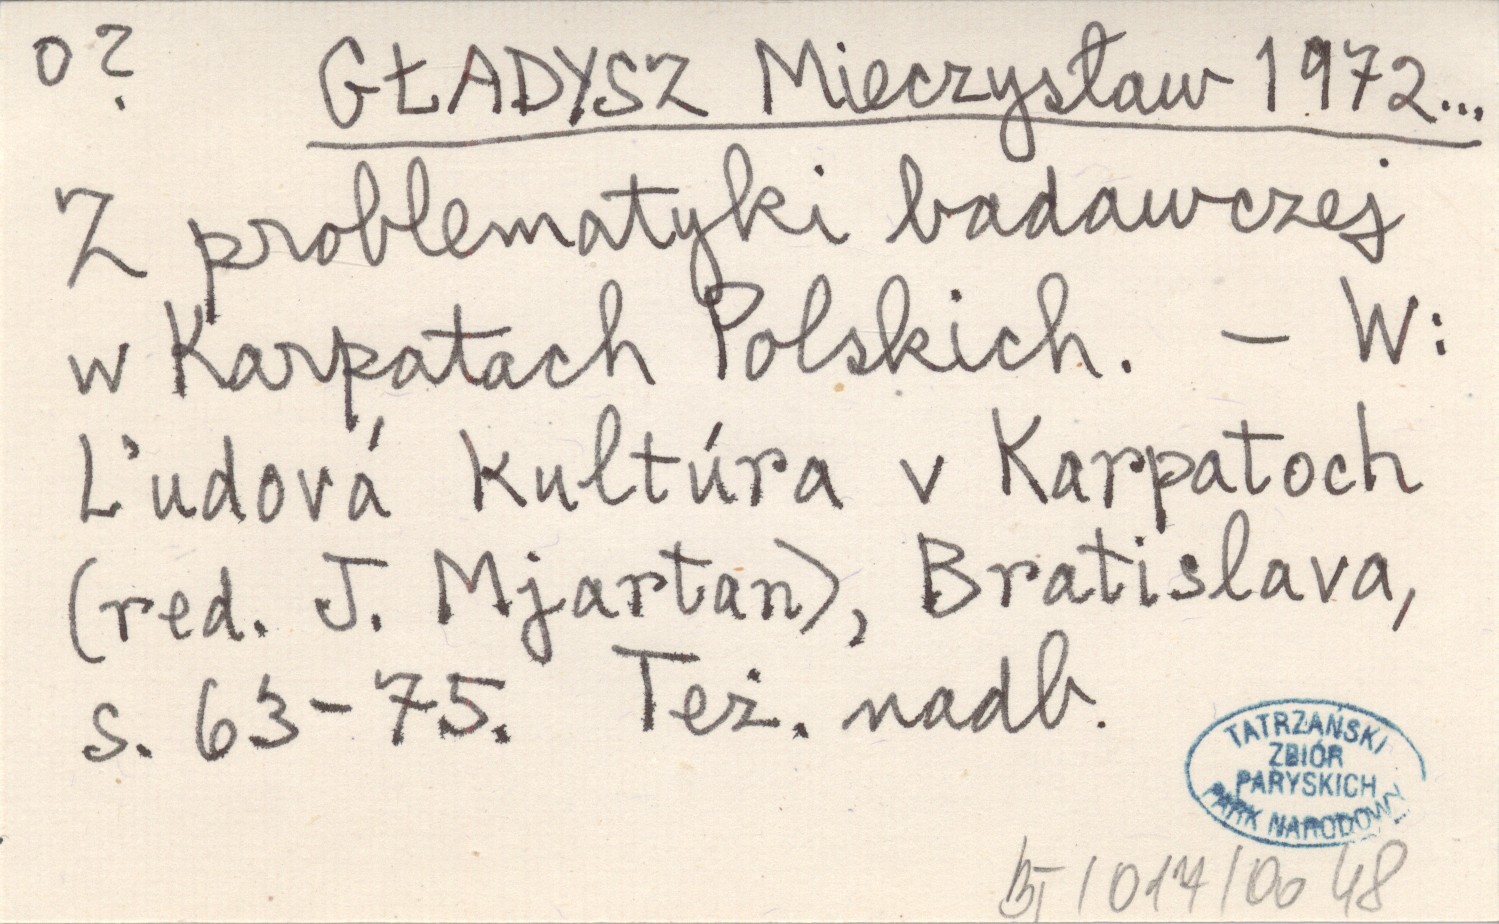 o? GŁADYSZ Mieczysław 1972...
Z problematyki badawczej
w Karpatach Polskich. – W:
Ľudová kultúra v Karpatoch
(red. J. Mjartan), Bratislava,
s. 63-75. Też. nadb.
TATRZAŃSKI
ZBIÓR
PARYSKICH
PARK NARODOWY
/ 017 / 00 48